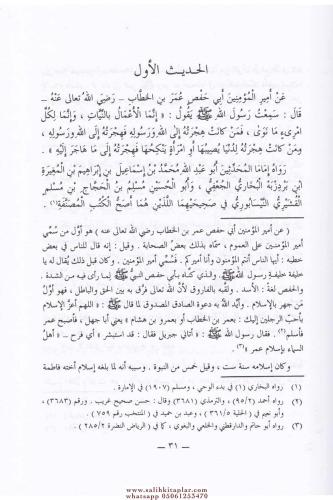 الحديث الأول
عَنْ أَمِيرِ الْمُؤْمِنِينَ أَبِي حَفْصٍ عُمَرَ بْنِ الخَطَّابِ ـ رَضِيَ اللهُ تعالى عَنْهُ ـ
قَالَ : سَمِعْتُ رَسُولَ اللهِ ﷺ يَقُولُ : « إِنَّمَا الْأَعْمَالُ بِالنِّيَّاتِ ، وَإِنَّمَا لِكُلِّ
امْرِىءٍ مَا نَوَىٰ ، فَمَنْ كَانَتْ هِجْرَتُهُ إِلَى اللهِ وَرَسُولِهِ فَهِجْرَتُهُ إِلَى اللهِ وَرَسُولِهِ ،
وَمِنْ كَانَتْ هِجْرَتُهُ لِدُنْيَا يُصِيبُهَا أَوِ امْرَأَةٍ يَنْكِحُهَا فَهِجْرَتُهُ إِلَى مَا هَاجَرَ إِلَيْهِ » .
رَوَاهُ إِمَامَا الْمُحَدِّثِينَ أَبُو عَبْدِ اللهِ مُحَمَّدُ بْنُ إِسْمَاعِيلَ بْنِ إِبْرَاهِيمَ بْنِ الْمُغِيرَةِ
ابْنِ بَرْدِزْبَهْ الْبُخَارِيُّ الْجُعْفِيُّ ، وَأَبُو الْحُسَيْنِ مُسْلِمُ بْنُ الْحَجَّاجِ بْنِ مُسْلِمٍ
الْقُشَيْرِيُّ النَّيْسَابُورِيُّ فِي صَحِيحَيْهِمَا اللَّذَيْنِ هُمَا أَصَحُّ الْكُتُبِ الْمُصَنَّفَةِ(١) .
( عن أمير المؤمنين أبي حفص عمر بن الخطاب رضي الله تعالى عنه ) هو أوّل من سُمّي
أمير المؤمنين على العموم ، سمّاه بذلك بعض الصحابة . وقيل : إنه قال للناس في بعض
خطبه : أيها الناس أنتم المؤمنون وأنا أميركم . فسُمِّي أمير المؤمنين . وكان قبل ذلك يُقال له يا
خليفة خليفة رسول الله ﷺ . والذي كنّاه بأبي حفص النبيُّ ﷺ لِما رأى فيه من الشدة .
والحفص لغة : الأسد . ولقّبه بالفاروق لأنَّ الله تعالى فرَّق به بين الحق والباطل ، فهو أوَّل
من جهر بالإسلام . وأيَّد اللهُ به دعوة الصادق المصدوق لما قال ﷺ : « اللهم أعزَّ الإسلام
بأحبّ الرجلين إليك : بعمر بن الخطاب أو بعمرو بن هشام » يعني أبا جهل ، فأصبح عمر
فأسلم(٢) . فقال رسول الله ﷺ : « أتاني جبريل فقال : قد استبشر » أي فرح ... « أهلُ
السماء بإسلام عمر »(٣) .
وكان إسلامه سنة ست ، وقيل خمس من النبوة . وسببه أنه لما بلغه إسلام أخته فاطمة
(١) رواه البخاري (١) في بدء الوحي ، ومسلم (١٩٠٧) في الإمارة .
(٢) رواه أحمد (٩٥/٢) ، والترمذي (٣٦٨١) وقال : حسن صحيح غريب . ورقم (٣٦٨٣) ،
وأبو نعيم في ( الحلية ٣٦١/٥ ) ، وعبد بن حميد في ( المنتخب رقم ٧٥٩ ) .
(٣) رواه أبو حاتم والدارقطني والخلعي والبغوي ، كما في ( الرياض النضرة ٢٨٥/٢ ) .
ـ ٣١ ـ
www.salihkitaplar.com
whatsapp 05061253470